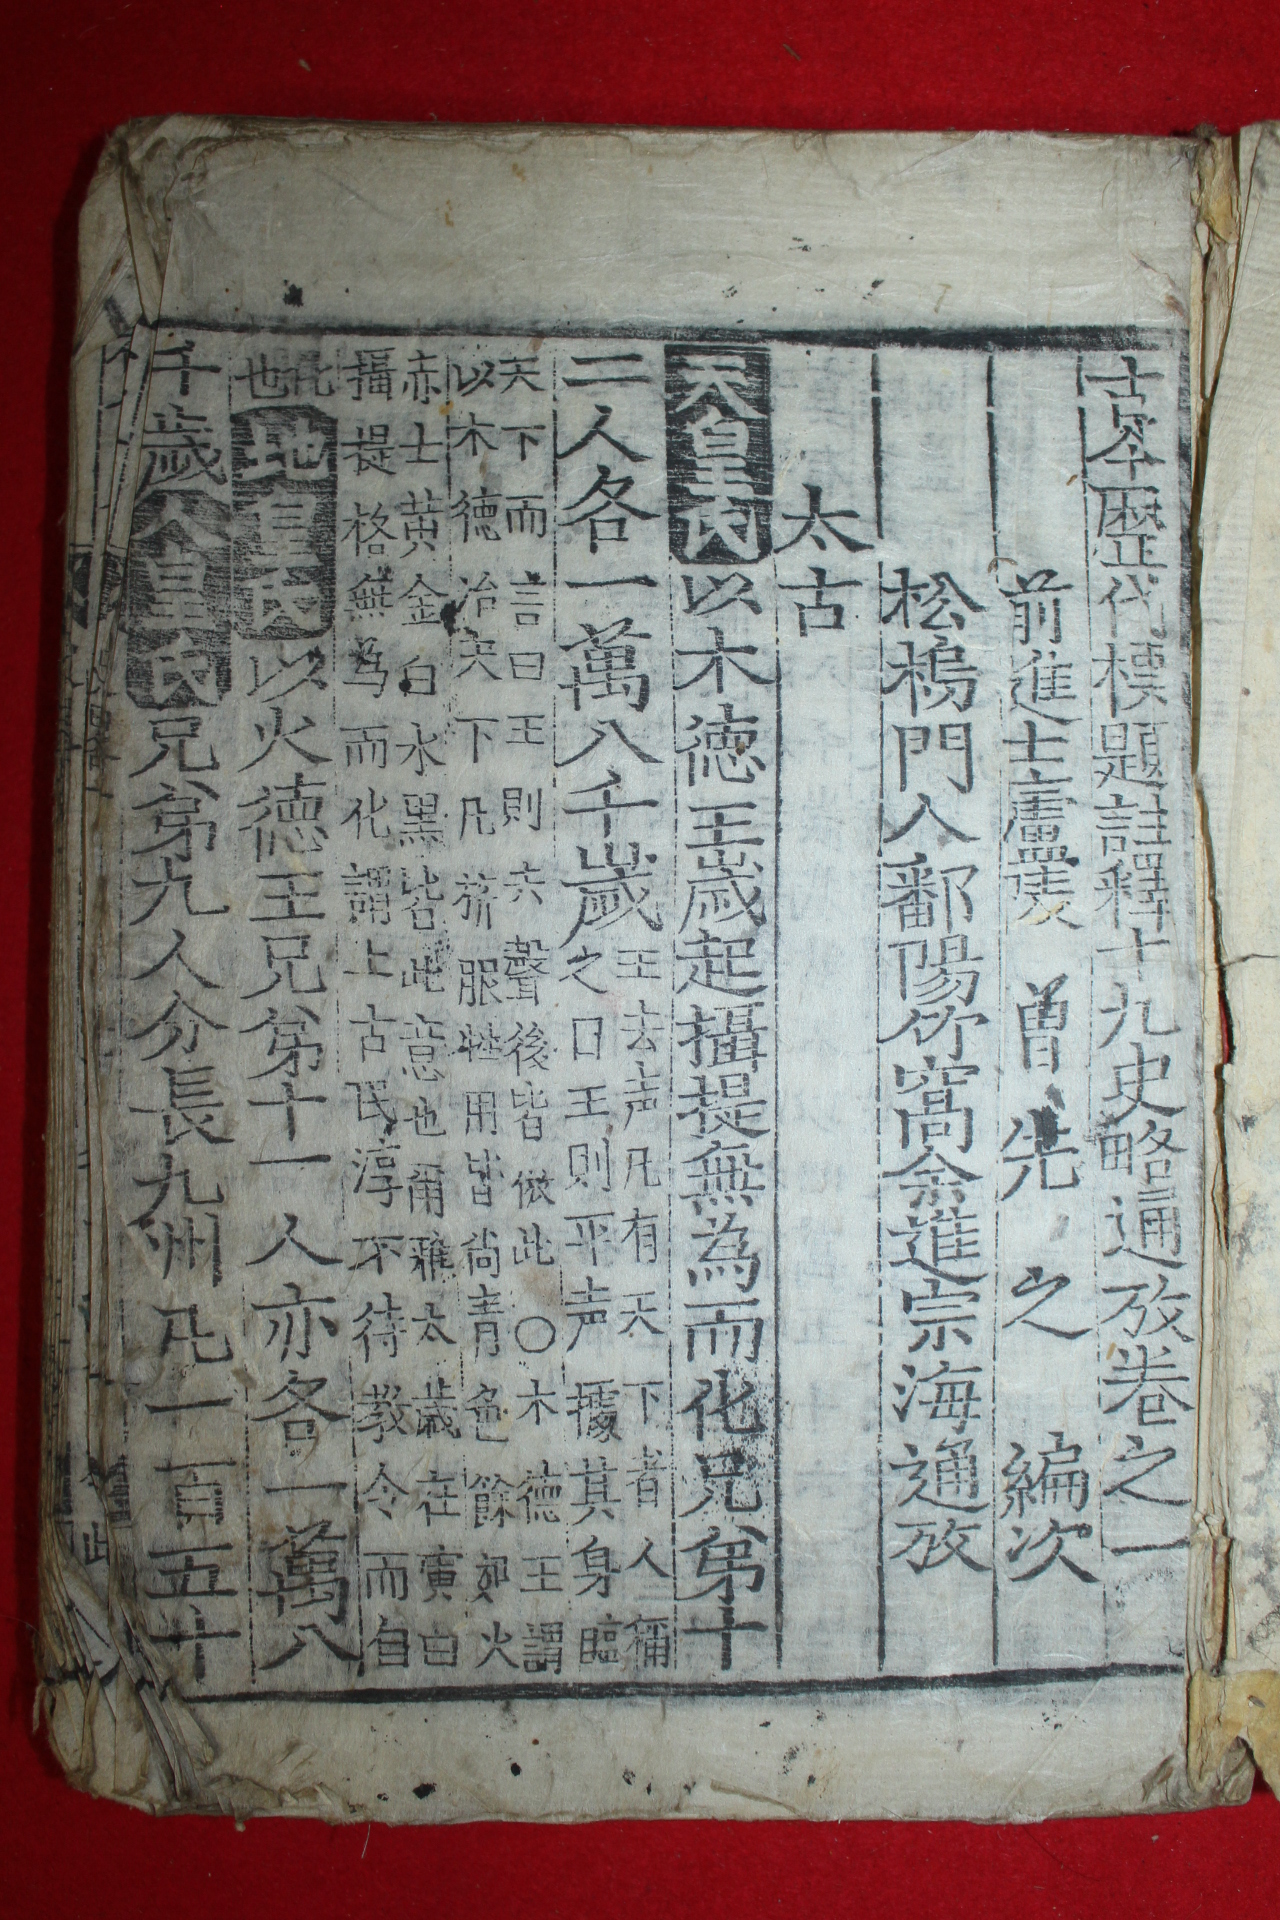 古今歷代標題註釋十九史略通攷卷之一
前進士廬陵 曾 先 之 編次
松塢門人鄱陽竹窩余進宗海通攷
太古
天皇氏以木德王歲起攝提無為而化兄弟十
二人各一萬八千歲
王去声凡有天下者人稱
之曰王則平声據其身臨
天下而言曰王則去聲後皆倣此○木德王謂
以木德治天下凡旂服牲用皆尚青色餘如火
赤土黃金白水黑皆此意也爾雅太歲在寅曰
攝提格無為而化謂上古民淳不待教令而自
化
也
地皇氏以火德王兄弟十一人亦各一萬八
千歲人皇氏兄弟九人分長九州凡一百五十